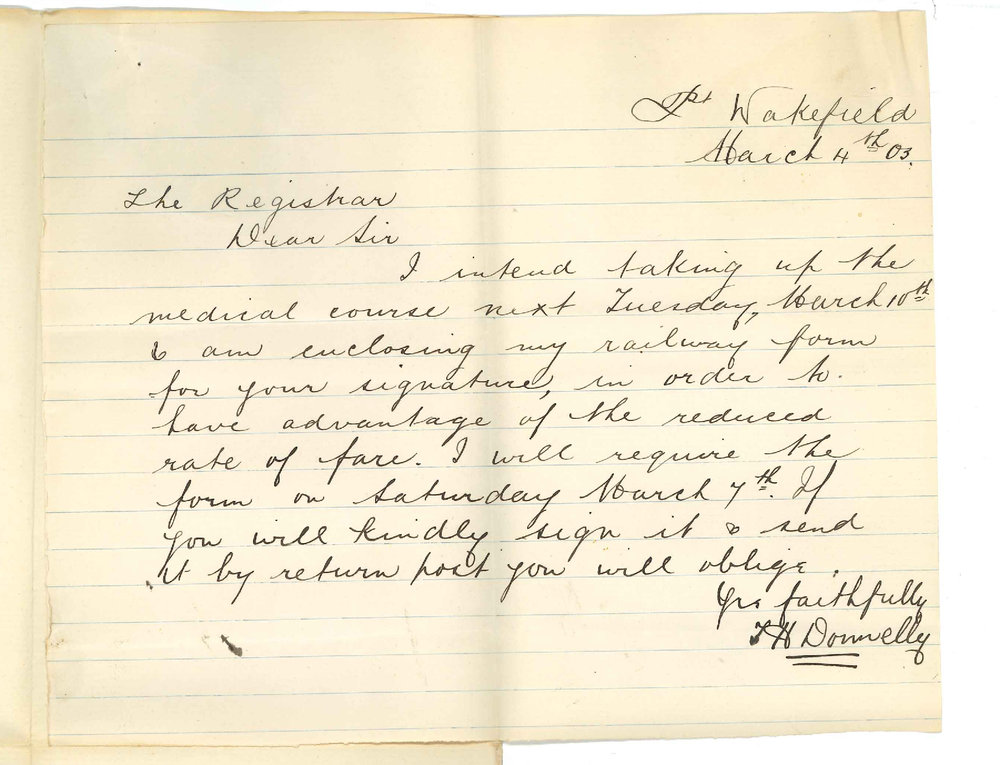 Pt Wakefield
March 4th 03.
The Registrar
Dear Sir
I intend taking up the
medical course next Tuesday, March 10th
& am enclosing my railway form
for your signature, in order to
have advantage of the reduced
rate of fare. I will require the
form on Saturday March 7th. If
you will kindly sign it & send
it by return post you will oblige.
Yrs faithfully
T H Donnelly